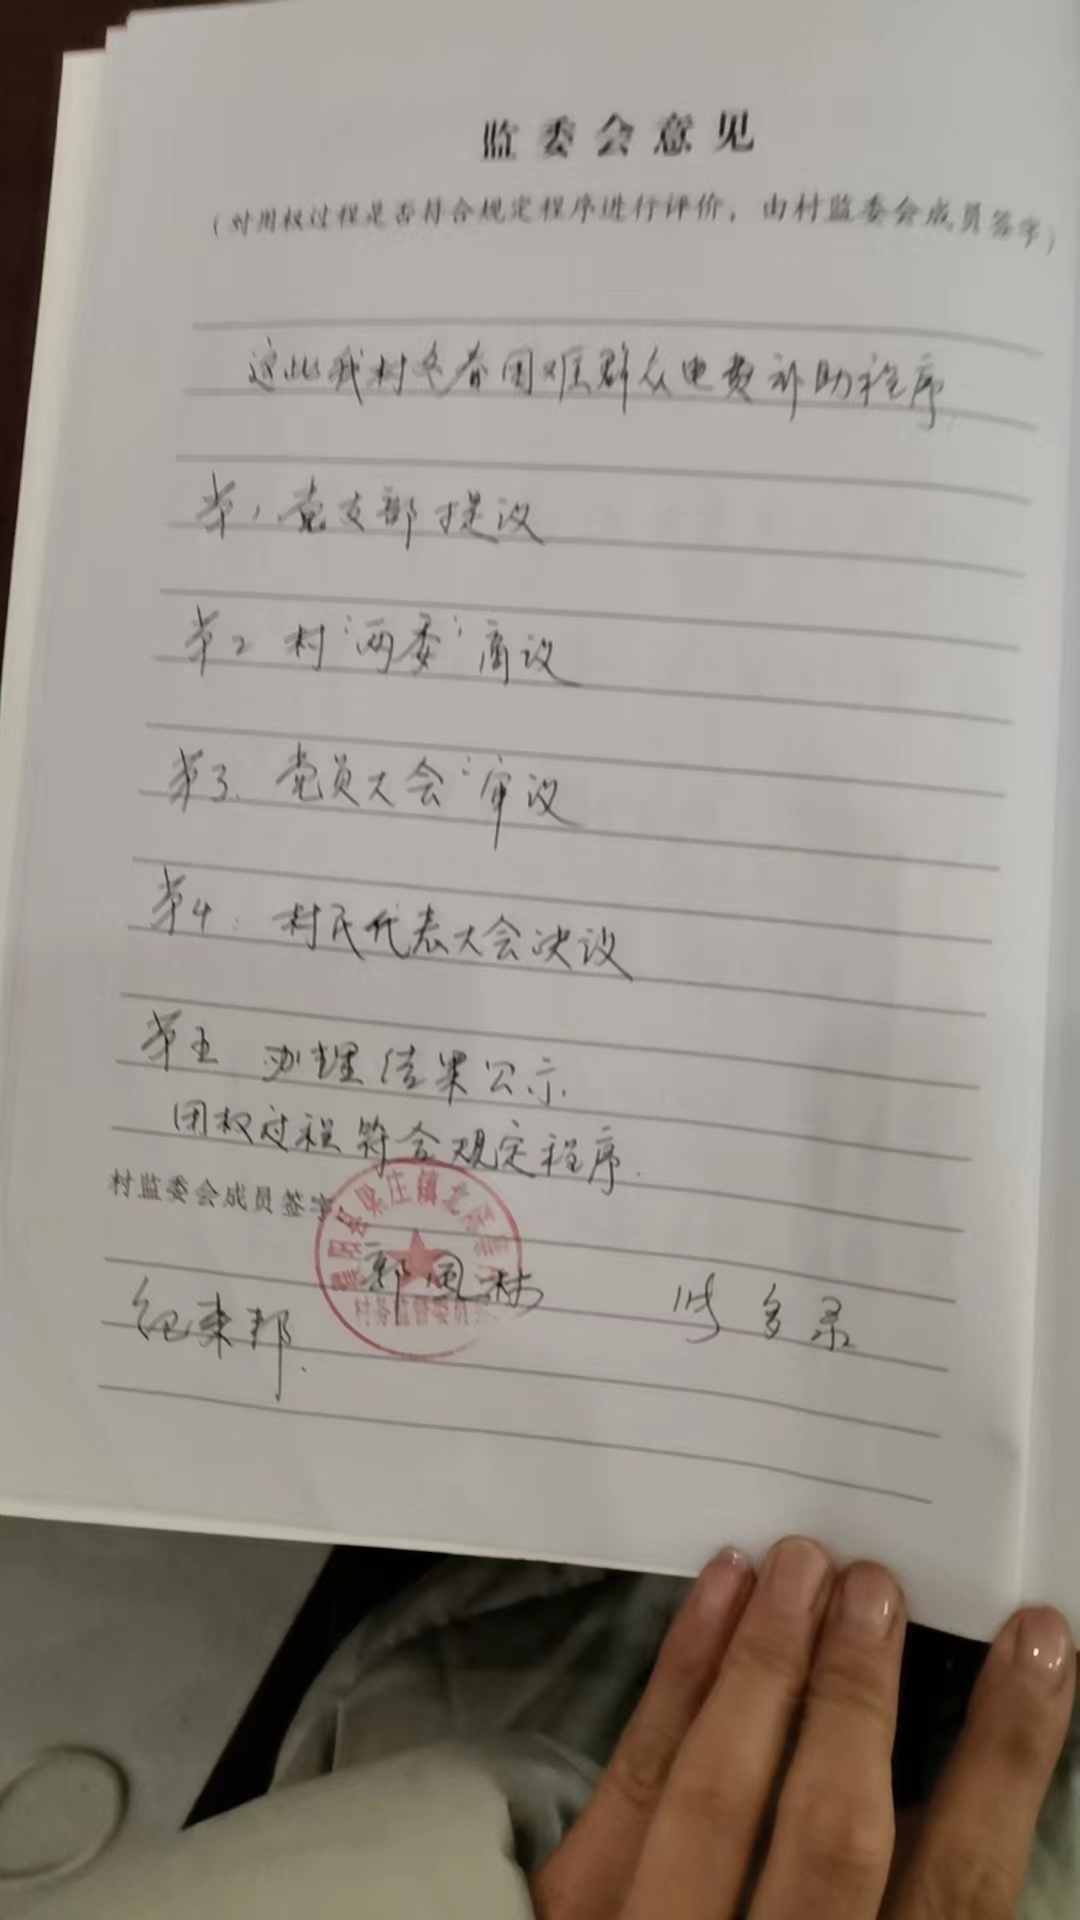 监委会意见
（对用权过程是否符合规定程序进行评价，由村监委会成员签字）
这此我村冬春困难群众电费补助程序
第1 党支部提议
第2 村“两委”商议
第3. 党员大会“审议
第4: 村民代表大会决议
第五 办理结果公示.
团权过程符合规定程序.
村监委会成员签字
县梁庄镇北
村务监督委员
郭风林
纪东邦.